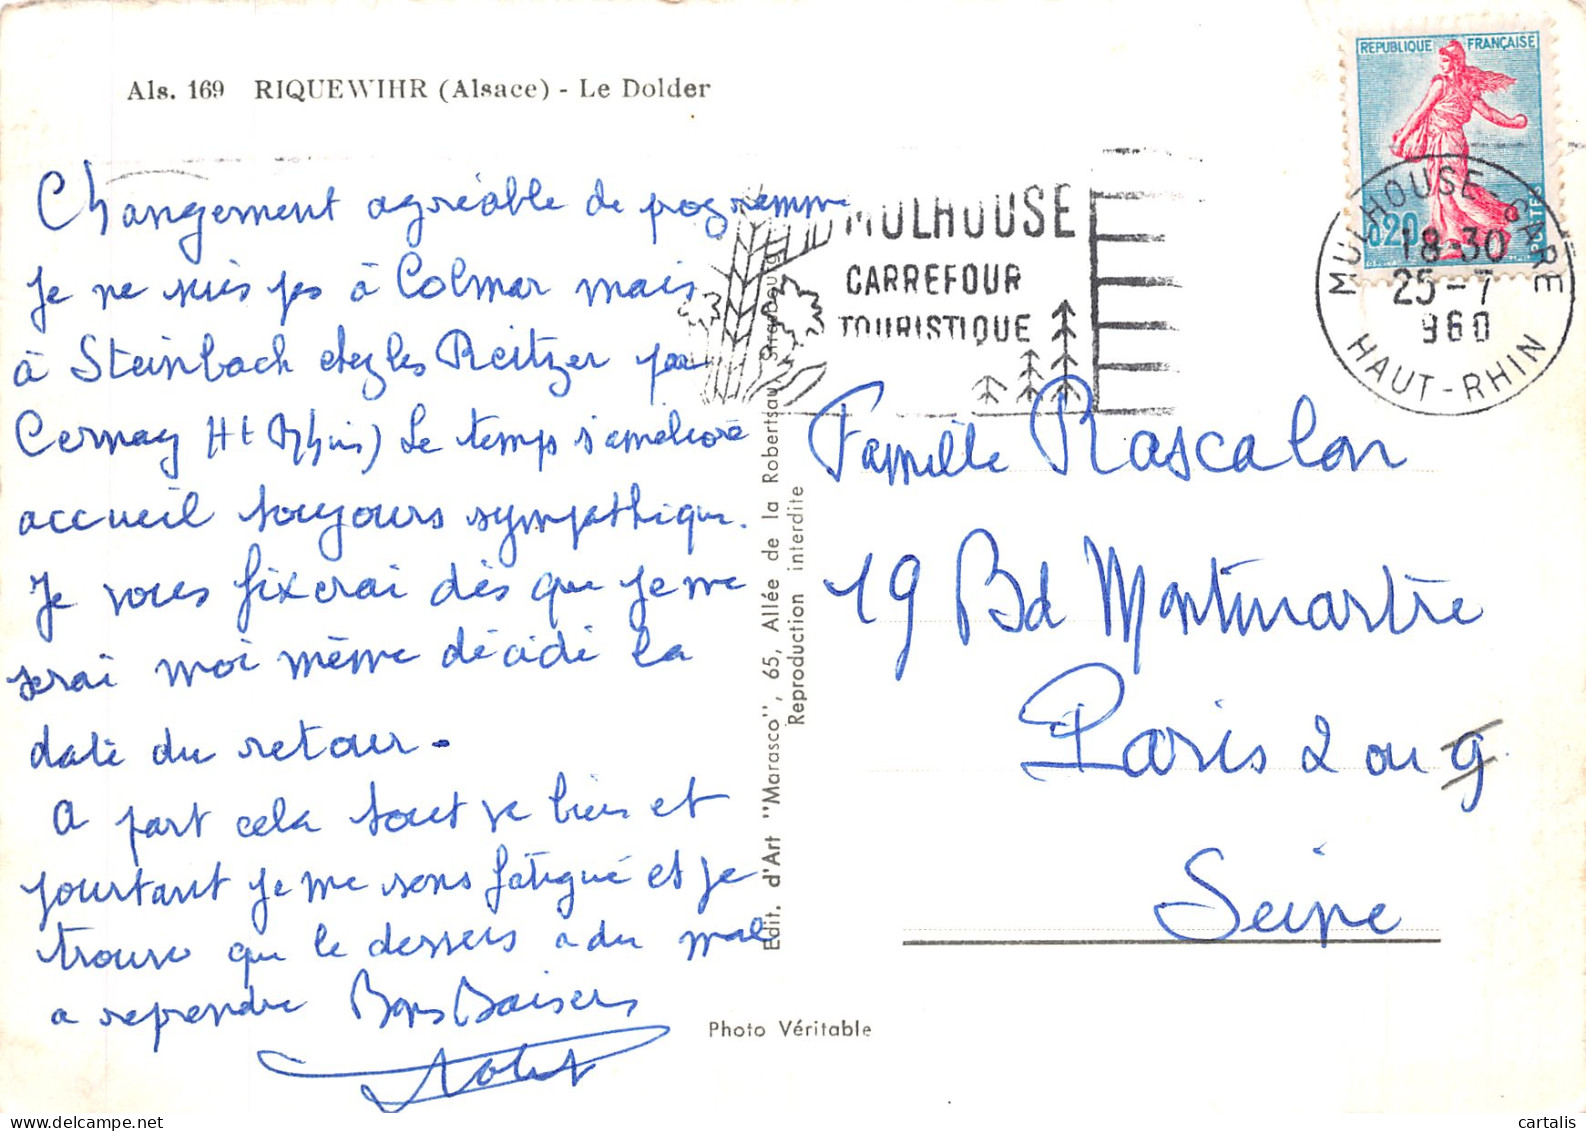 Als. 169 RIQUEWIHR (Alsace) - Le Dolder
Changement agréable de programme
Je ne suis pas à Colmar mais
à Steinbach chez les Reitzer par
Cernay Ht Rhin) Le temps s'améliore
accueil toujours sympathique.
Je vous fixerai dès que je me
serai moi même décidé la
date du retour.
A part cela tout va bien et
pourtant je me sens fatigué et je
trouve que le dessus a du mal
a reprendre Bons Baisers
Edit. d'Art "Marasco", 65, Allée de la Robertsau, Strasbourg
Reproduction interdite
Photo Véritable
MULHOUSE
CARREFOUR
TOURISTIQUE
REPUBLIQUE FRANÇAISE
0,20
POSTES
MULHOUSE-GARE
18-30
25-7
960
HAUT-RHIN
Famille Rascalon
19 Bd Montmartre
Paris 2 ou 9
Seine
cartalis